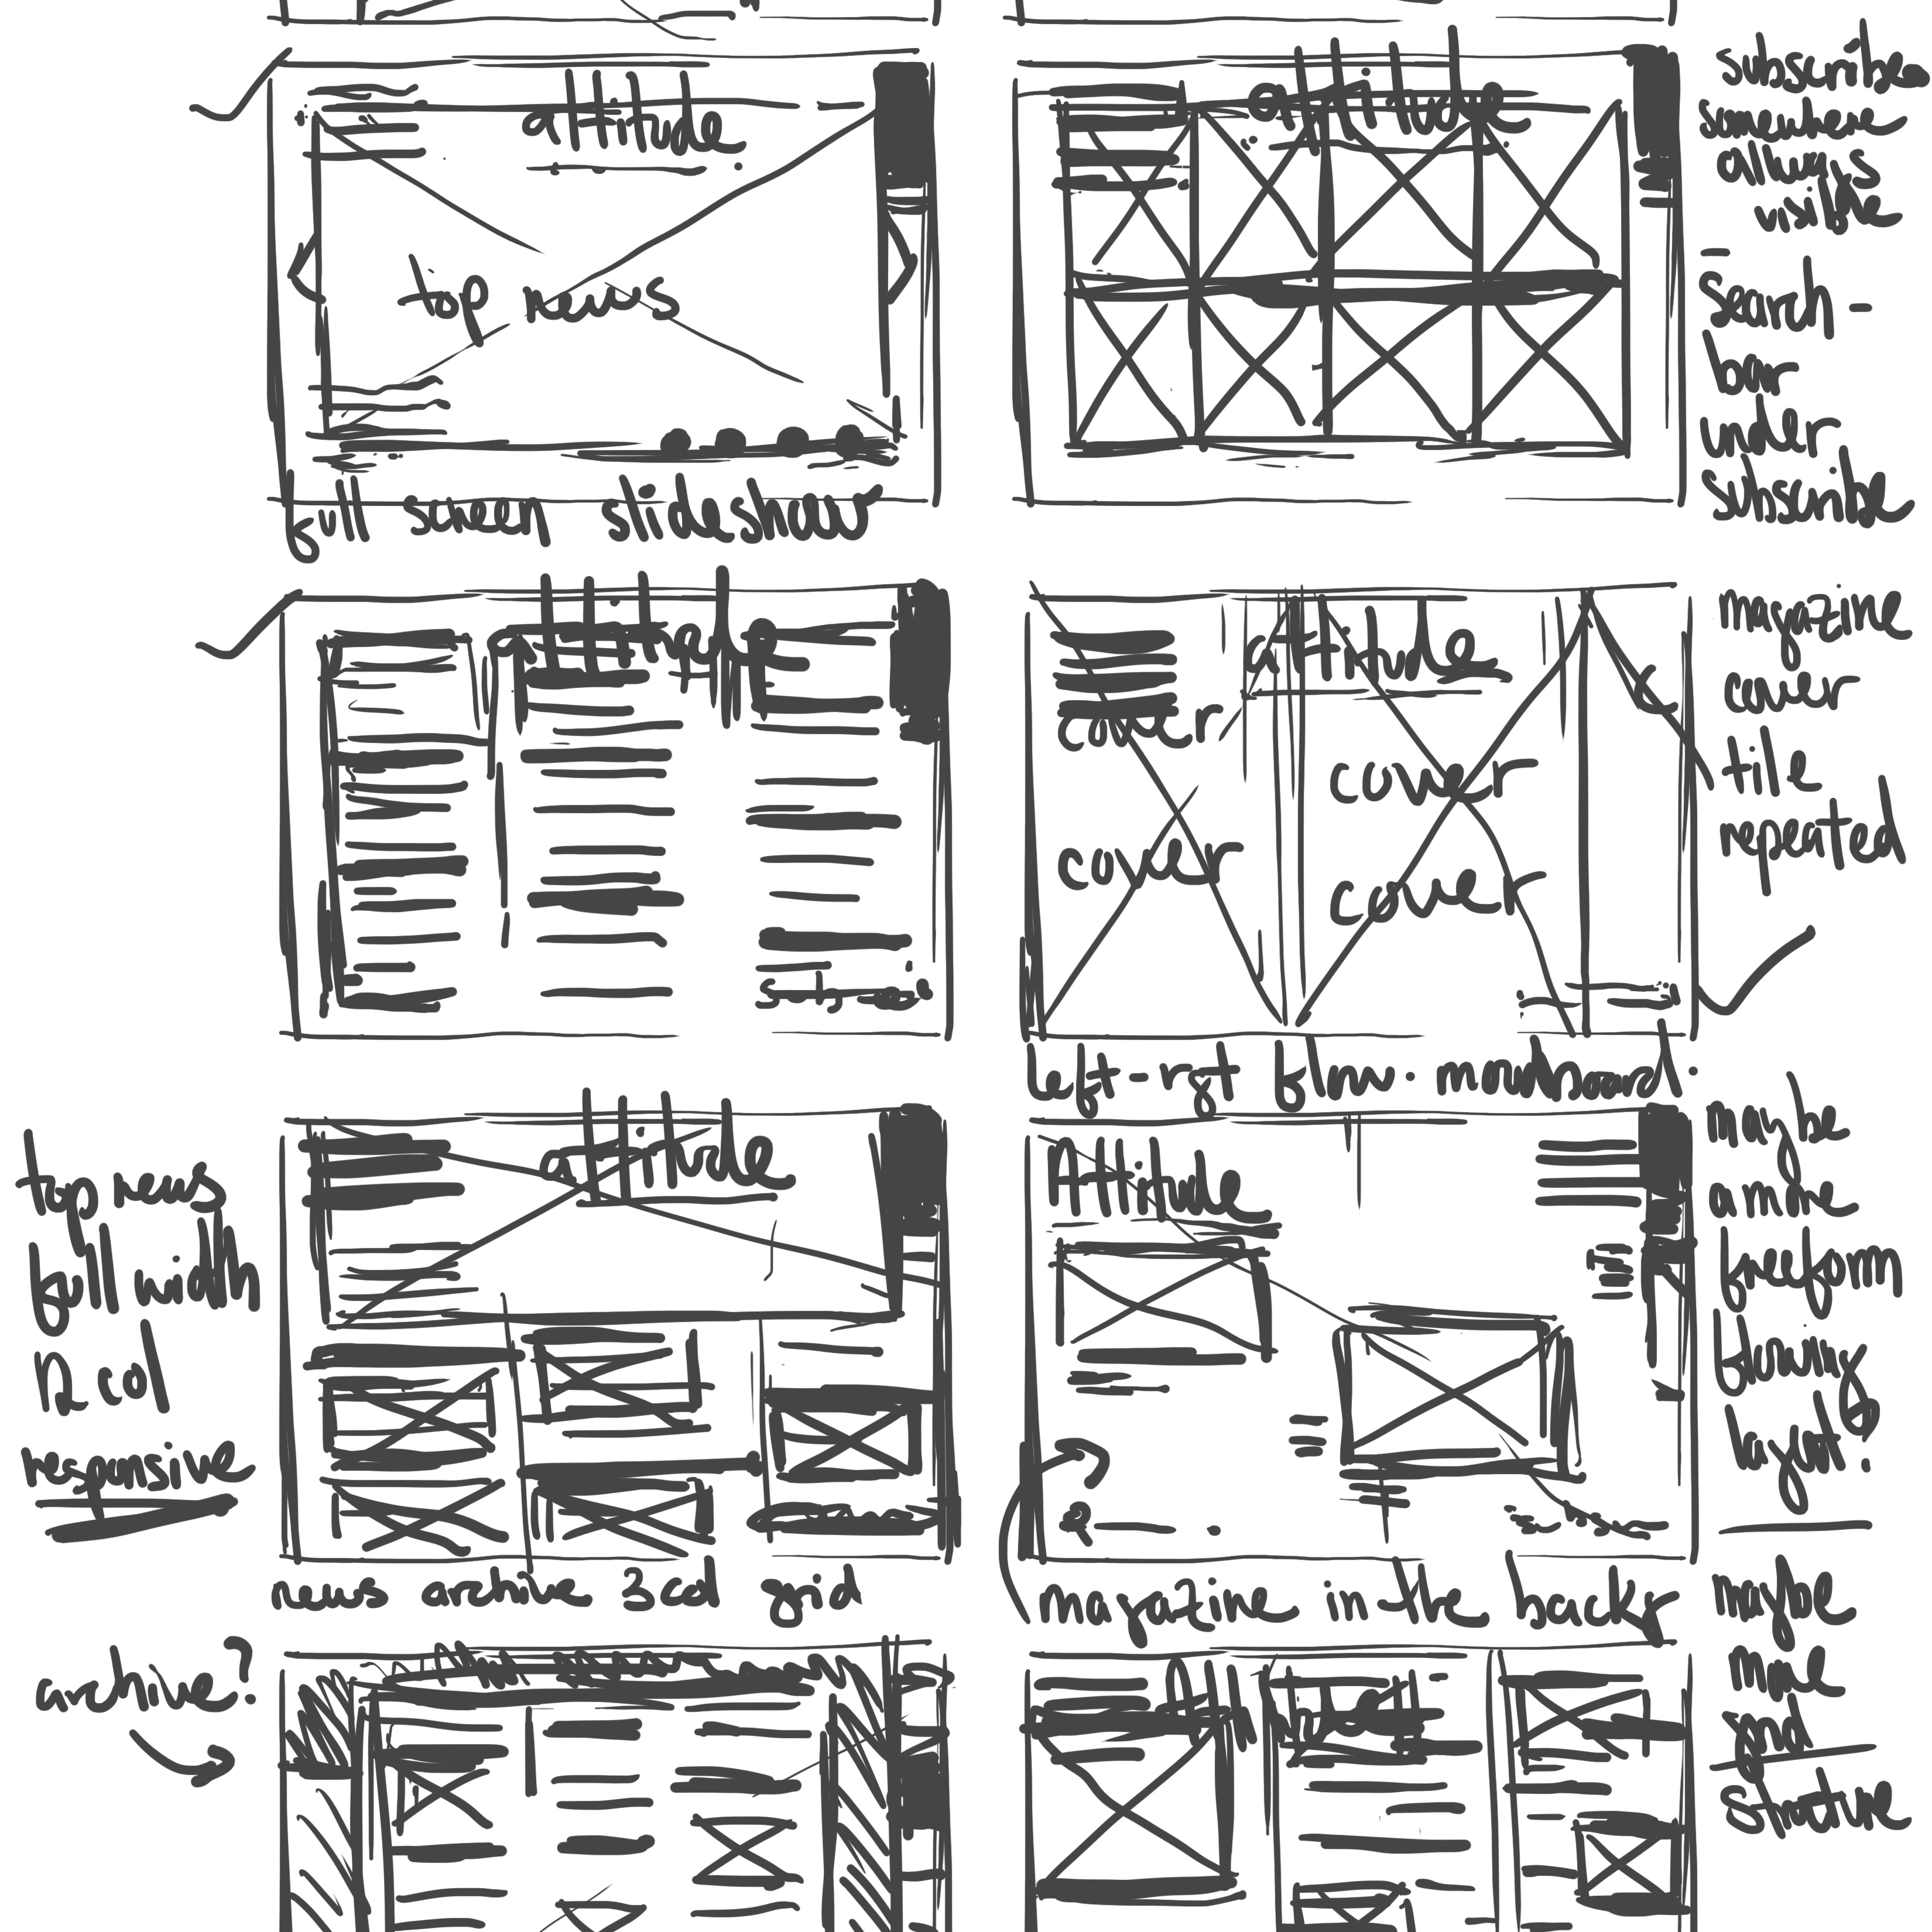 attitude
top news
full screen slideshow
attitude
subscribe
somewhere
always
visible
-
search -
bar
under
subscribe
attitude
attitude
cover
cover
cover
cover
magazine
cover
title
repeated
left-rgt flow.
top news
full width
12 col
responsive
attitude
news archive 3 col grid
Attitude
magazine in the back
maybe
a more
freeform
flowing
layout?
archive?
maybe
more
grid